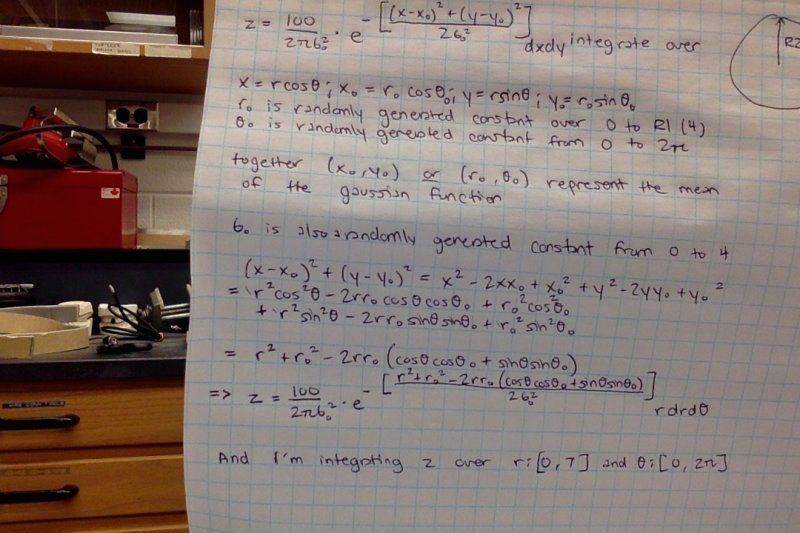 z = 100/2πσ₀² · e^-[((x-x₀)² + (y-y₀)²)/2σ₀²] dxdy integrate over
R2
x = rcosθ ; x₀ = r₀ cosθ₀ ; y = rsinθ ; y₀ = r₀ sinθ₀
r₀ is randomly generated constant over 0 to R1 (4)
θ₀ is randomly generated constant from 0 to 2π
together (x₀, y₀) or (r₀, θ₀) represent the mean
of the gaussian function
σ₀ is also randomly generated constant from 0 to 4
(x-x₀)² + (y-y₀)² = x² - 2xx₀ + x₀² + y² - 2yy₀ + y₀²
= r²cos²θ - 2rr₀ cosθcosθ₀ + r₀²cos²θ₀
+ r²sin²θ - 2rr₀ sinθsinθ₀ + r₀²sin²θ₀
= r² + r₀² - 2rr₀ (cosθcosθ₀ + sinθsinθ₀)
=> z = 100/2πσ₀² · e^-[(r²+r₀²-2rr₀(cosθcosθ₀+sinθsinθ₀))/2σ₀²] rdrdθ
And I'm integrating z over r:[0,7] and θ:[0,2π]